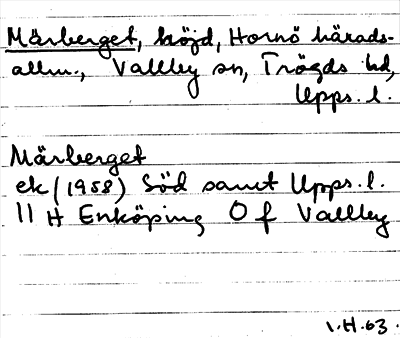 Märberget, höjd, Hornö härads-
allm., Vallby sn, Trögds hd,
Upps. l.
Märberget
ek (1958) Söd samt Upps. l.
11 H Enköping O f Vallby
I.H.63.